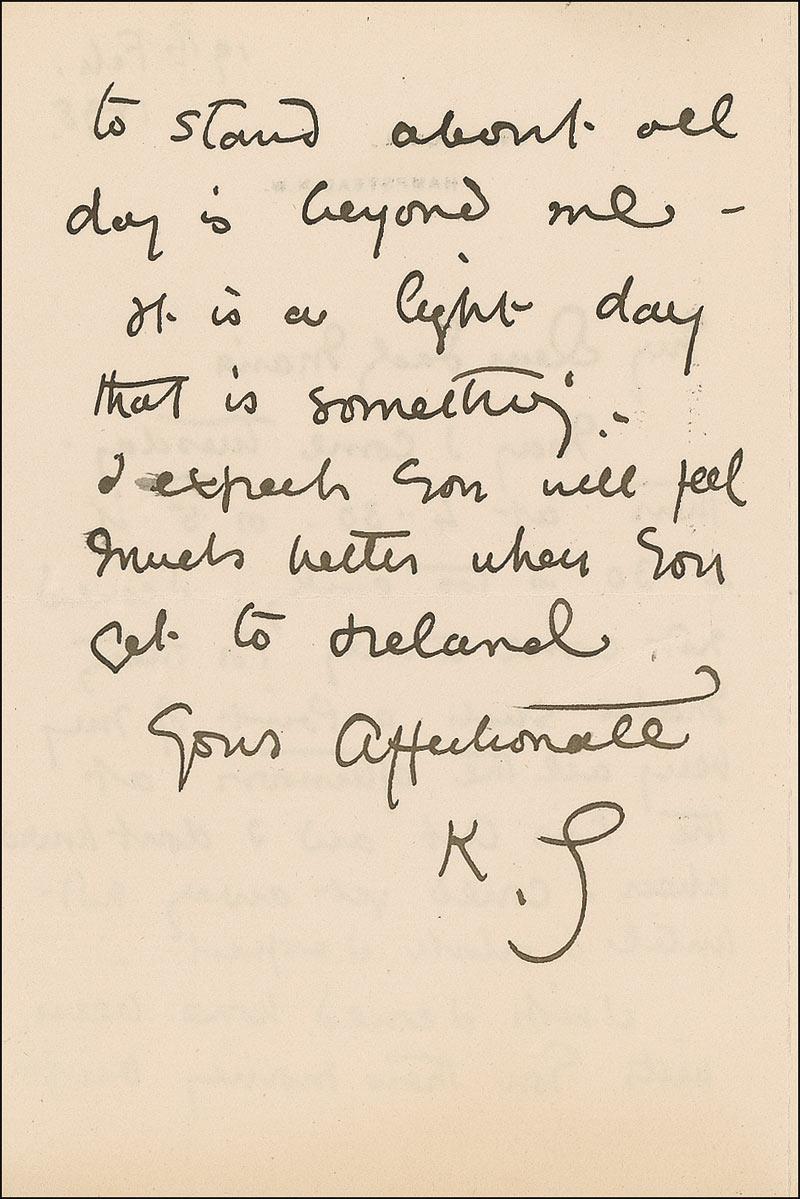 to stand about all
day is beyond me -
It is a light day
that is something.
I expect you will feel
much better when you
get to Ireland.
Yours Affectionate
K. G